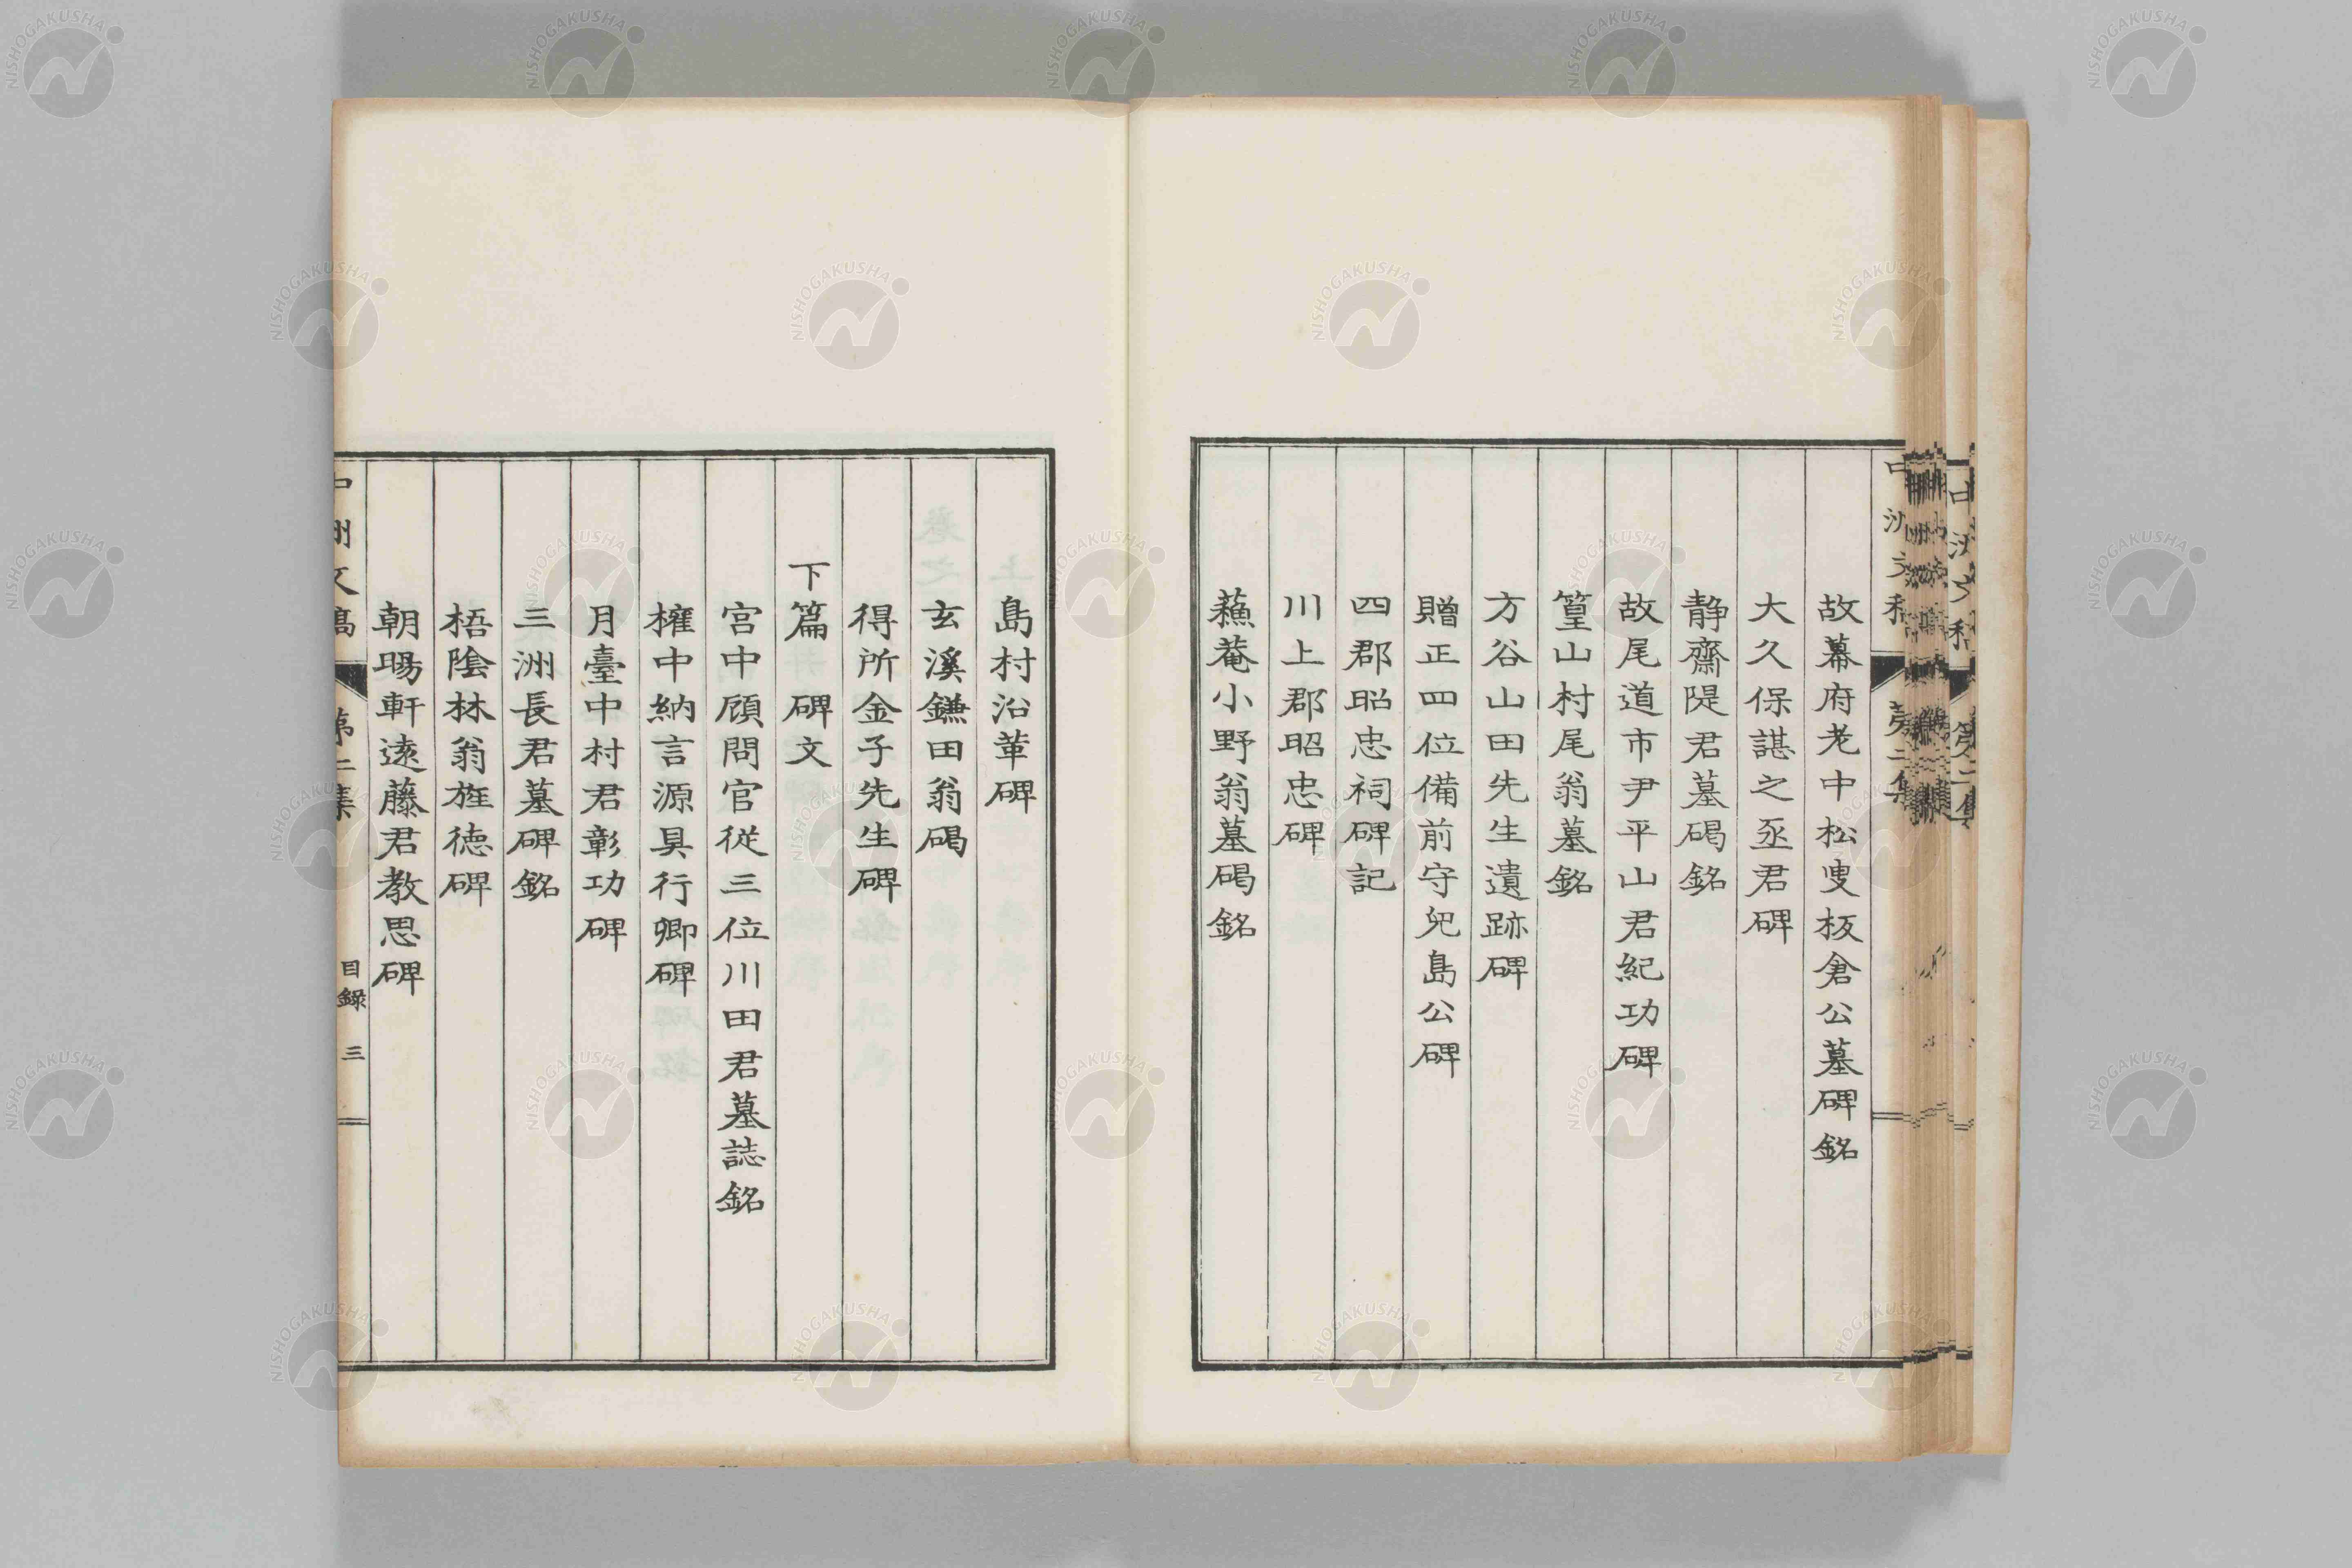 故幕府老中松叟板倉公墓碑銘
大久保諶之丞君碑
静齋隄君墓碣銘
故尾道市尹平山君紀功碑
篁山村尾翁墓銘
方谷山田先生遺跡碑
贈正四位備前守兒島公碑
四郡昭忠祠碑記
川上郡昭忠碑
蘓菴小野翁墓碣銘
島村沿革碑
玄溪鎌田翁碣
得所金子先生碑
下篇 碑文
宮中顧問官從三位川田君墓誌銘
権中納言源具行卿碑
月臺中村君彰功碑
三洲長君墓碑銘
梧陰林翁旌德碑
朝暘軒遠藤君教思碑
中洲文稿 第二集 目録 三
NISHOGAKUSHA